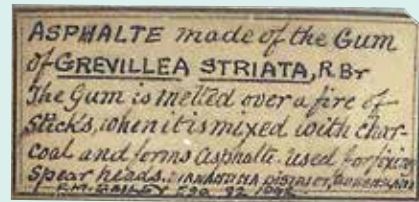 ASPHALTE made of the Gum
of GREVILLEA STRIATA, R.Br
The Gum is melted over a fire of
Sticks, when it is mixed with char-
coal and forms Asphalte. used for fixing
Spear heads. DIAMANTINA DISTRICT, QUEENSLAND
F.M. BAILEY ESQ